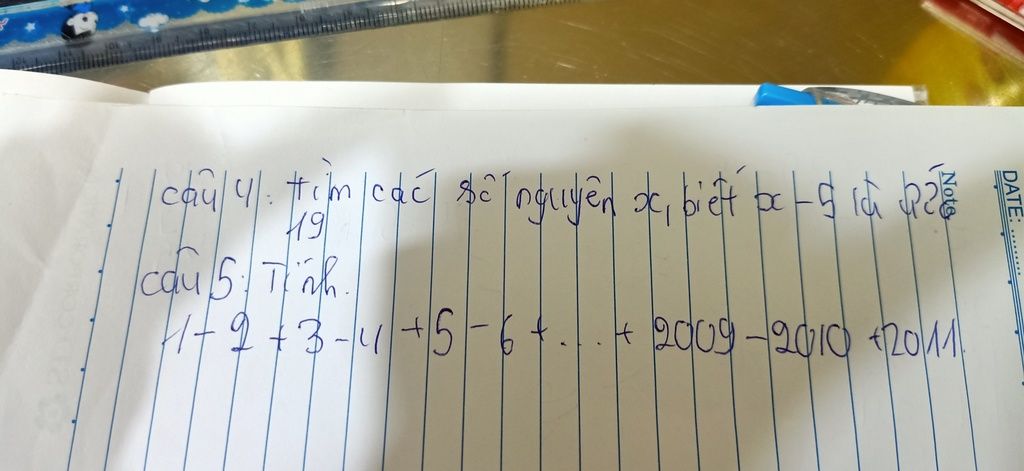 câu 4: tìm các số nguyên x, biết x - 5 là
19
câu 5: Tính.
1 - 2 + 3 - 4 + 5 - 6 + .... + 2009 - 2010 + 2011.
Note
DATE: ........